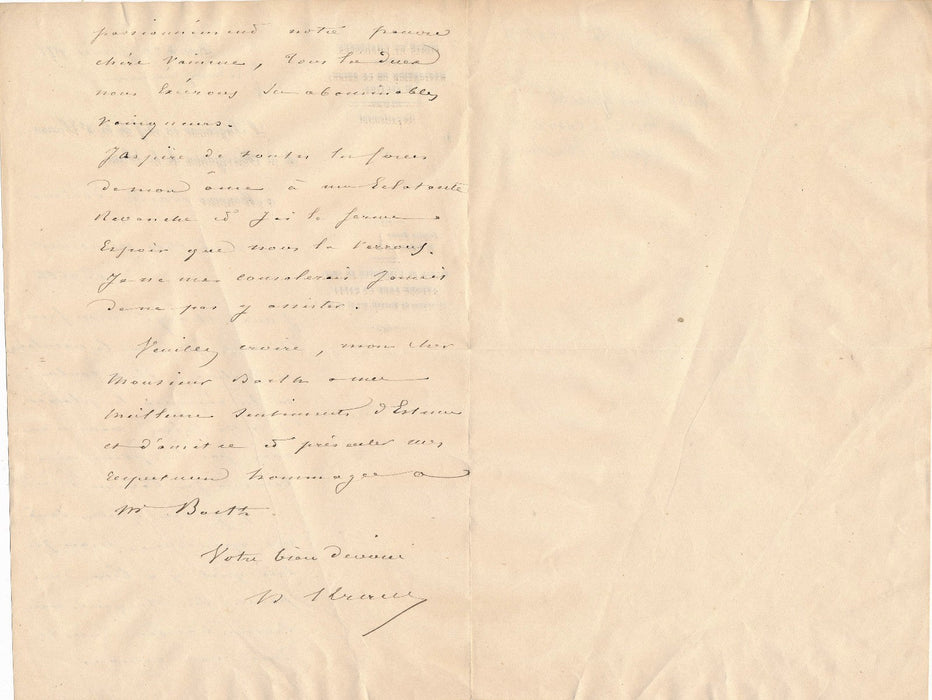 passionnément notre pauvre
chère vaincue, tous les deux
nous Exécrons les abominables
vainqueurs.
J'aspire de toutes les forces
de mon âme à une Eclatante
Revanche et J'ai le ferme
Espoir que nous la Verrons.
Je ne me consolerais Jamais
de ne pas y assister.
Veuillez croire, mon cher
Monsieur Barth à mes
meilleurs sentiments d'Estime
et d'amitié et présenter mes
respectueux hommages à
Me Barth.
Votre bien dévoué